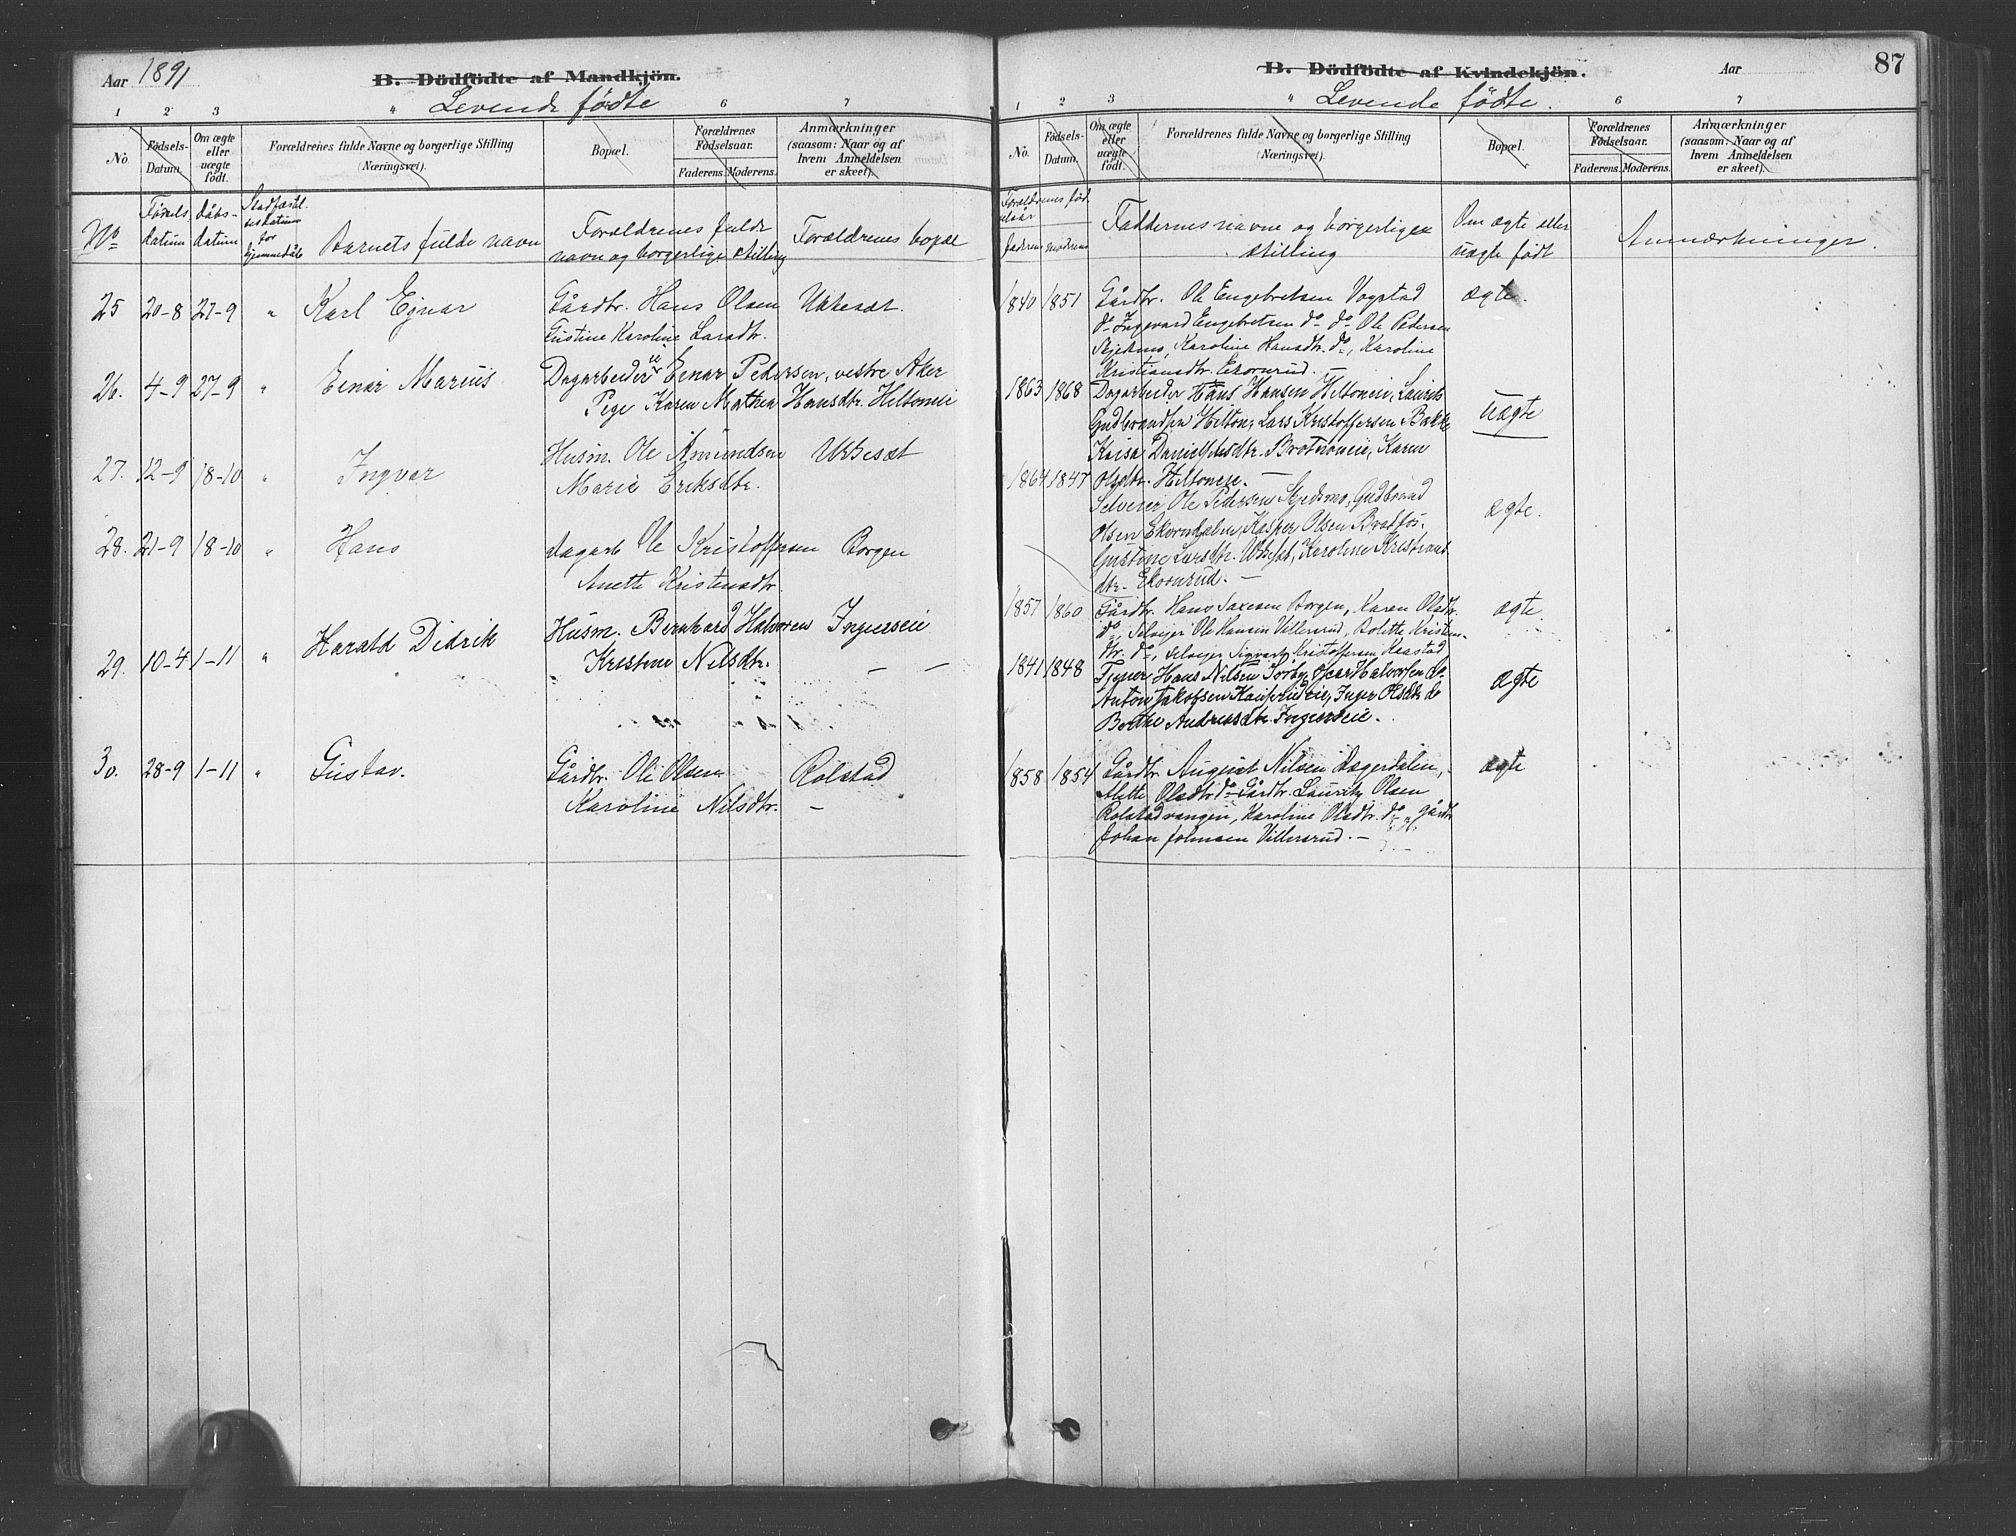 Aar 1891
B. Dödfödte af Mandkjön.
Levende fødte
1 2 3 4 6 7
No.
Fødsels-Datum.
Om ægte eller uægte født.
Forældrenes fulde Navne og borgerlige Stilling
(Næringsvei).
Bopæl.
Forældrenes Fødselsaar.
Faderens. Moderens.
Anmærkninger
(saasom: Naar og af
hvem Anmeldelsen
er skeet).
No
Fødselsdatum
Dåbsdatum
Stadfæstelsesdatum for hjemmedåb
Barnets fulde navn
Forældrenes fulde
navn og borgerlige stilling
Forældrenes bopæl
25 20-8 27-9 " Karl Ejnar
Gårdbr. Hans Olsen
Gustine Karoline Larsdtr.
Ukkesæt.
26. 4-9 27-9 " Einar Marius
Dagarbeider Einar Pedersen, vestre Aker
Pige Karen Mathea Hansdtr. Hiltoneie
27. 12-9 18-10 " Ingvar
Husm. Ole Amundsen
Marie Eriksdtr.
Ukkesæt
28. 21-9 18-10 " Hans
Dagarb Ole Kristoffersen
Anette Kristensdtr.
Borgen
29. 10-4 1-11 " Harald Didrik
Husm. Bernhard Halvorsen
Kristine Nilsdtr.
Ingierseie
— —
30. 28-9 1-11 " Gustav.
Gårdbr. Ole Olsen
Karoline Nilsdtr.
Rolstad
—
B. Dödfödte af Kvindekjön.
Levende fødte.
Aar
87
1 2 3 4 6 7
No.
Fødsels-Datum.
Om ægte eller uægte født.
Forældrenes fulde Navne og borgerlige Stilling
(Næringsvei).
Bopæl.
Forældrenes Fødselsaar.
Faderens. Moderens.
Anmærkninger
(saasom: Naar og af
hvem Anmeldelsen
er skeet).
Forældrenes fødselsår
faderens moderens
Faddernes navne og borgerlige
stilling
Om ægte eller
uægte født
Anmærkninger
1840 1851 Gårdbr. Ole Engebretsen Vogstad
do Ingevard Engebretsen do do Ole Pedersen
Skjedsmo, Karoline Hansdtr. do, Karoline
Kristiansdtr. Ekornrud. —
ægte.
1863 1868 Dagarbeider Hans Hansen Hiltoneie, Laurits
Gudbrandsen Hilton, Lars Kristoffersen Bakke
Kaisa Danielsdtr. Brotnoveie, Karen
Olsdtr. Hiltoneie. —
uægte
1864 1847
Selveier Ole Pedersen Skjedsmo, Gudbrand
Olsen Ekorndalen, Kasper Olsen Bradfos.
Gustine Larsdtr. Ukkesæt, Karoline Kristians
dtr. Ekornrud. —
ægte.
1857 1860 Gårdbr. Hans Saxesen Borgen, Karen Olsdtr.
do, Selvejer Ole Hansen Villersrud, Bolette Kristens-
dtr. do, selvejer Sigvart Kristoffersen Kaastad
ægte.
1841 1848 Tjener Hans Nilsen Torby, Oscar Halvorsen do.
Anton Jakobsen Kauserudeie, Inger Olsdtr. do
Berthe Andreasdtr. Ingierseie.
ægte
1858 1854 Gårdbr. August Nilsen Dagerdalen,
Alette Olsdtr. do Gårdbr. Lauritz Olsen
Rolstadvangen, Karoline Olsdtr. do, gårdbr.
Johan Johnsen Villersrud. —
ægte